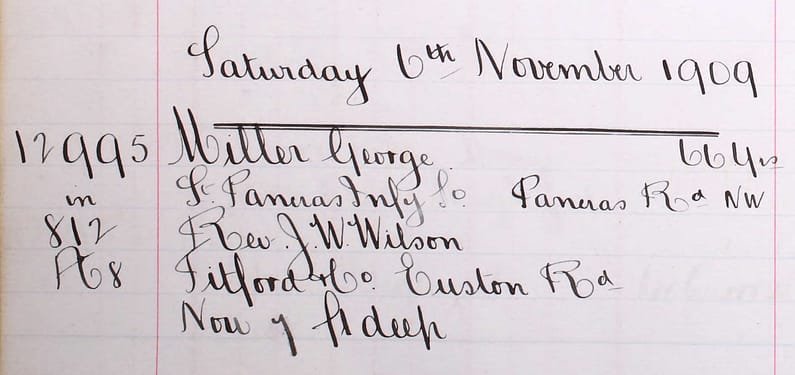 Saturday 6th November 1909
12995 Miller George 66 Yrs
in St. Pancras Infy So. Pancras Rd NW
812 Rev. J. W. Wilson
A8 Titford & Co. Euston Rd
Now 7 ft deep